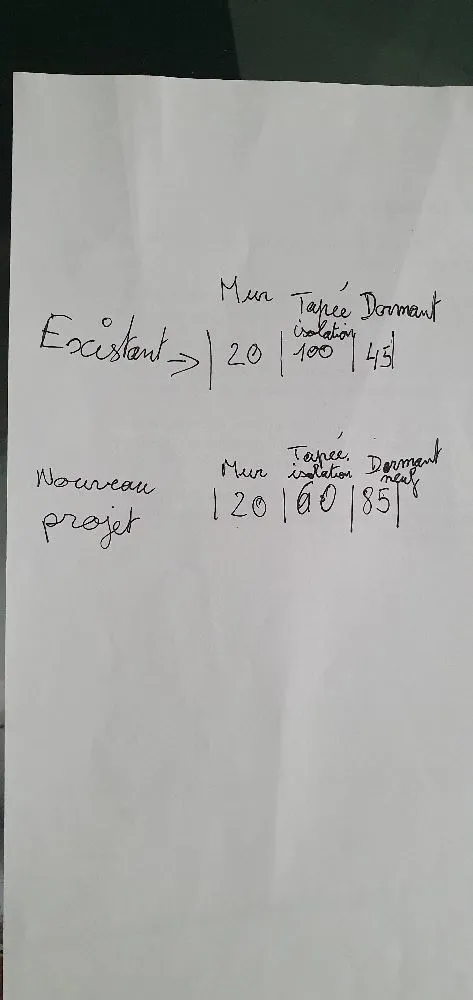 Mur Tapée Dormant
isolation
Existant → | 20 | 100 | 45 |
Mur Tapée Dormant
isolation neuf
Nouveau | 20 | 60 | 85 |
projet